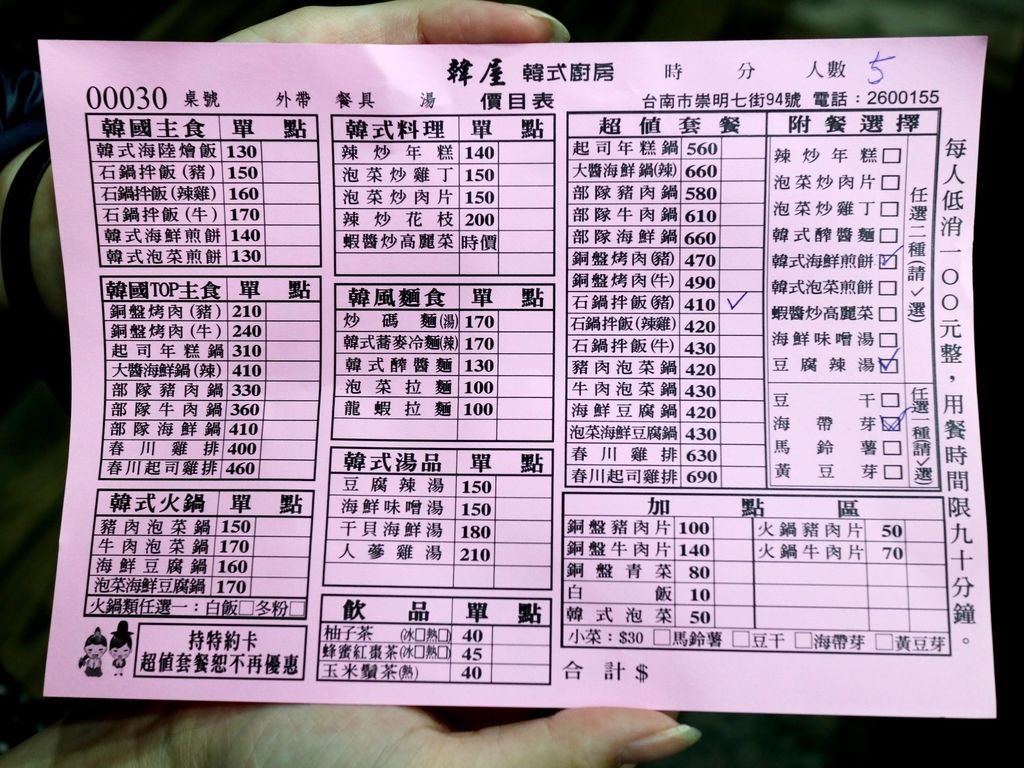 韓屋 韓式廚房 時 分 人數 5
00030 桌號 外帶 餐具 湯 價目表 台南市崇明七街94號 電話:2600155
韓國主食 單 點
韓式海陸燴飯 130
石鍋拌飯(豬) 150
石鍋拌飯(辣雞) 160
石鍋拌飯(牛) 170
韓式海鮮煎餅 140
韓式泡菜煎餅 130
韓國TOP主食 單 點
銅盤烤肉(豬) 210
銅盤烤肉(牛) 240
起司年糕鍋 310
大醬海鮮鍋(辣) 410
部隊豬肉鍋 330
部隊牛肉鍋 360
部隊海鮮鍋 410
春川雞排 400
春川起司雞排 460
韓式火鍋 單 點
豬肉泡菜鍋 150
牛肉泡菜鍋 170
海鮮豆腐鍋 160
泡菜海鮮豆腐鍋 170
火鍋類任選一:白飯□冬粉□
持特約卡
超值套餐恕不再優惠
韓式料理 單 點
辣炒年糕 140
泡菜炒雞丁 150
泡菜炒肉片 150
辣炒花枝 200
蝦醬炒高麗菜 時價
韓風麵食 單 點
炒碼麵(湯) 170
韓式蕎麥冷麵(辣) 170
韓式醡醬麵 130
泡菜拉麵 100
龍蝦拉麵 100
韓式湯品 單 點
豆腐辣湯 150
海鮮味噌湯 150
干貝海鮮湯 180
人蔘雞湯 210
飲品 單 點
柚子茶 (冰□熱□) 40
蜂蜜紅棗茶(冰□熱□) 45
玉米鬚茶(熱) 40
超值套餐
起司年糕鍋 560
大醬海鮮鍋(辣) 660
部隊豬肉鍋 580
部隊牛肉鍋 610
部隊海鮮鍋 660
銅盤烤肉(豬) 470
銅盤烤肉(牛) 490
石鍋拌飯(豬) 410 ✓
石鍋拌飯(辣雞) 420
石鍋拌飯(牛) 430
豬肉泡菜鍋 420
牛肉泡菜鍋 430
海鮮豆腐鍋 420
泡菜海鮮豆腐鍋 430
春川雞排 630
春川起司雞排 690
附餐選擇
辣炒年糕□
泡菜炒肉片□
泡菜炒雞丁□
韓式醡醬麵□
韓式海鮮煎餅☑
韓式泡菜煎餅□
蝦醬炒高麗菜□
海鮮味噌湯□
豆腐辣湯☑
任選二種(請✓選)
豆干□
海帶芽☑
馬鈴薯□
黃豆芽□
任選一種(請✓選)
加點區
銅盤豬肉片 100 火鍋豬肉片 50
銅盤牛肉片 140 火鍋牛肉片 70
銅盤青菜 80
白飯 10
韓式泡菜 50
小菜:$30 □馬鈴薯 □豆干 □海帶芽 □黃豆芽
合計$
每人低消一○○元整,用餐時間限九十分鐘。